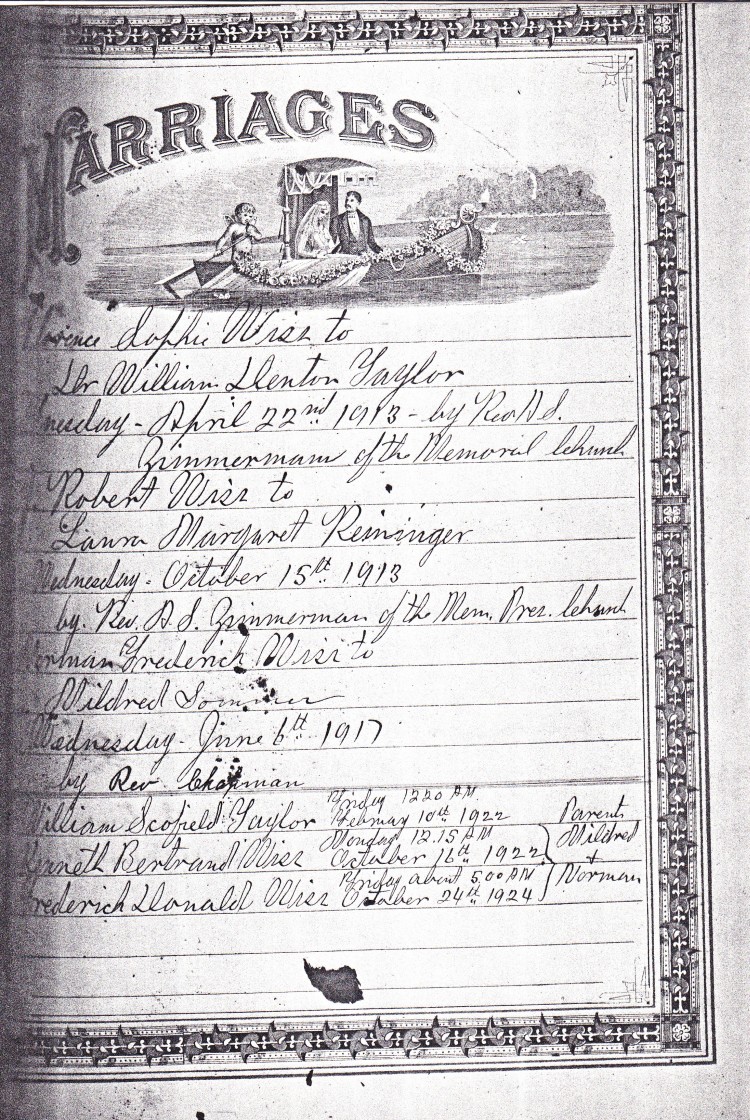 MARRIAGES
Sophie Wiss to
Dr William Denton Taylor
April 22nd 1913 - by Rev D.S.
Zimmerman of the Memorial Church
Robert Wiss to
Laura Margaret Reininger
Wednesday - October 15th 1913
by Rev. D. S. Zimmerman of the Mem. Pres. Church
Norman Frederick Wiss to
Mildred Sommer
Wednesday - June 6th 1917
by Rev Chapman
William Scofield Taylor Friday 12 20 AM. February 10th 1922
Kenneth Bertrand Wiss Monday 12.15 AM October 16th 1922
Frederick Donald Wiss Friday about 5.00 AM October 24th 1924
Parents
Mildred
+
Norman